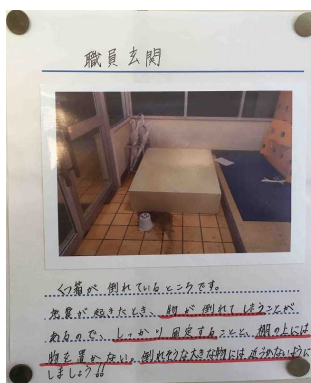 職員玄関
くつ箱が倒れているところです。
地震が起きたとき、物が倒れてしまうことが
あるので、しっかり固定することと、棚の上には
物を置かない。倒れそうな大きな物には近づかないように
しましょう!!